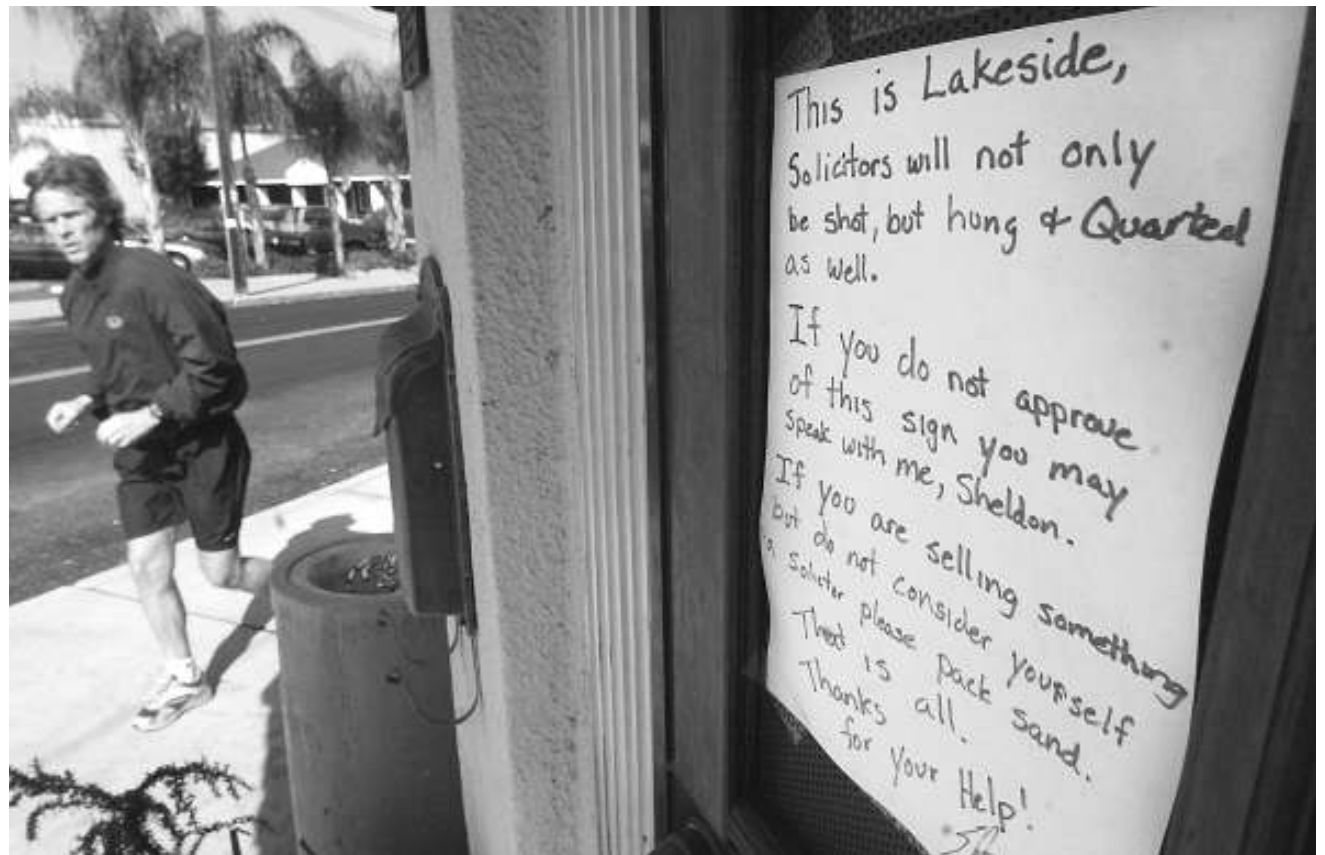 This is Lakeside,
Solicitors will not only
be shot, but hung & Quarted
as well.
If you do not approve
of this sign you may
speak with me, Sheldon.
If you are selling something
but do not consider yourself
a soliciter please pack sand.
That is all.
Thanks
for your Help!